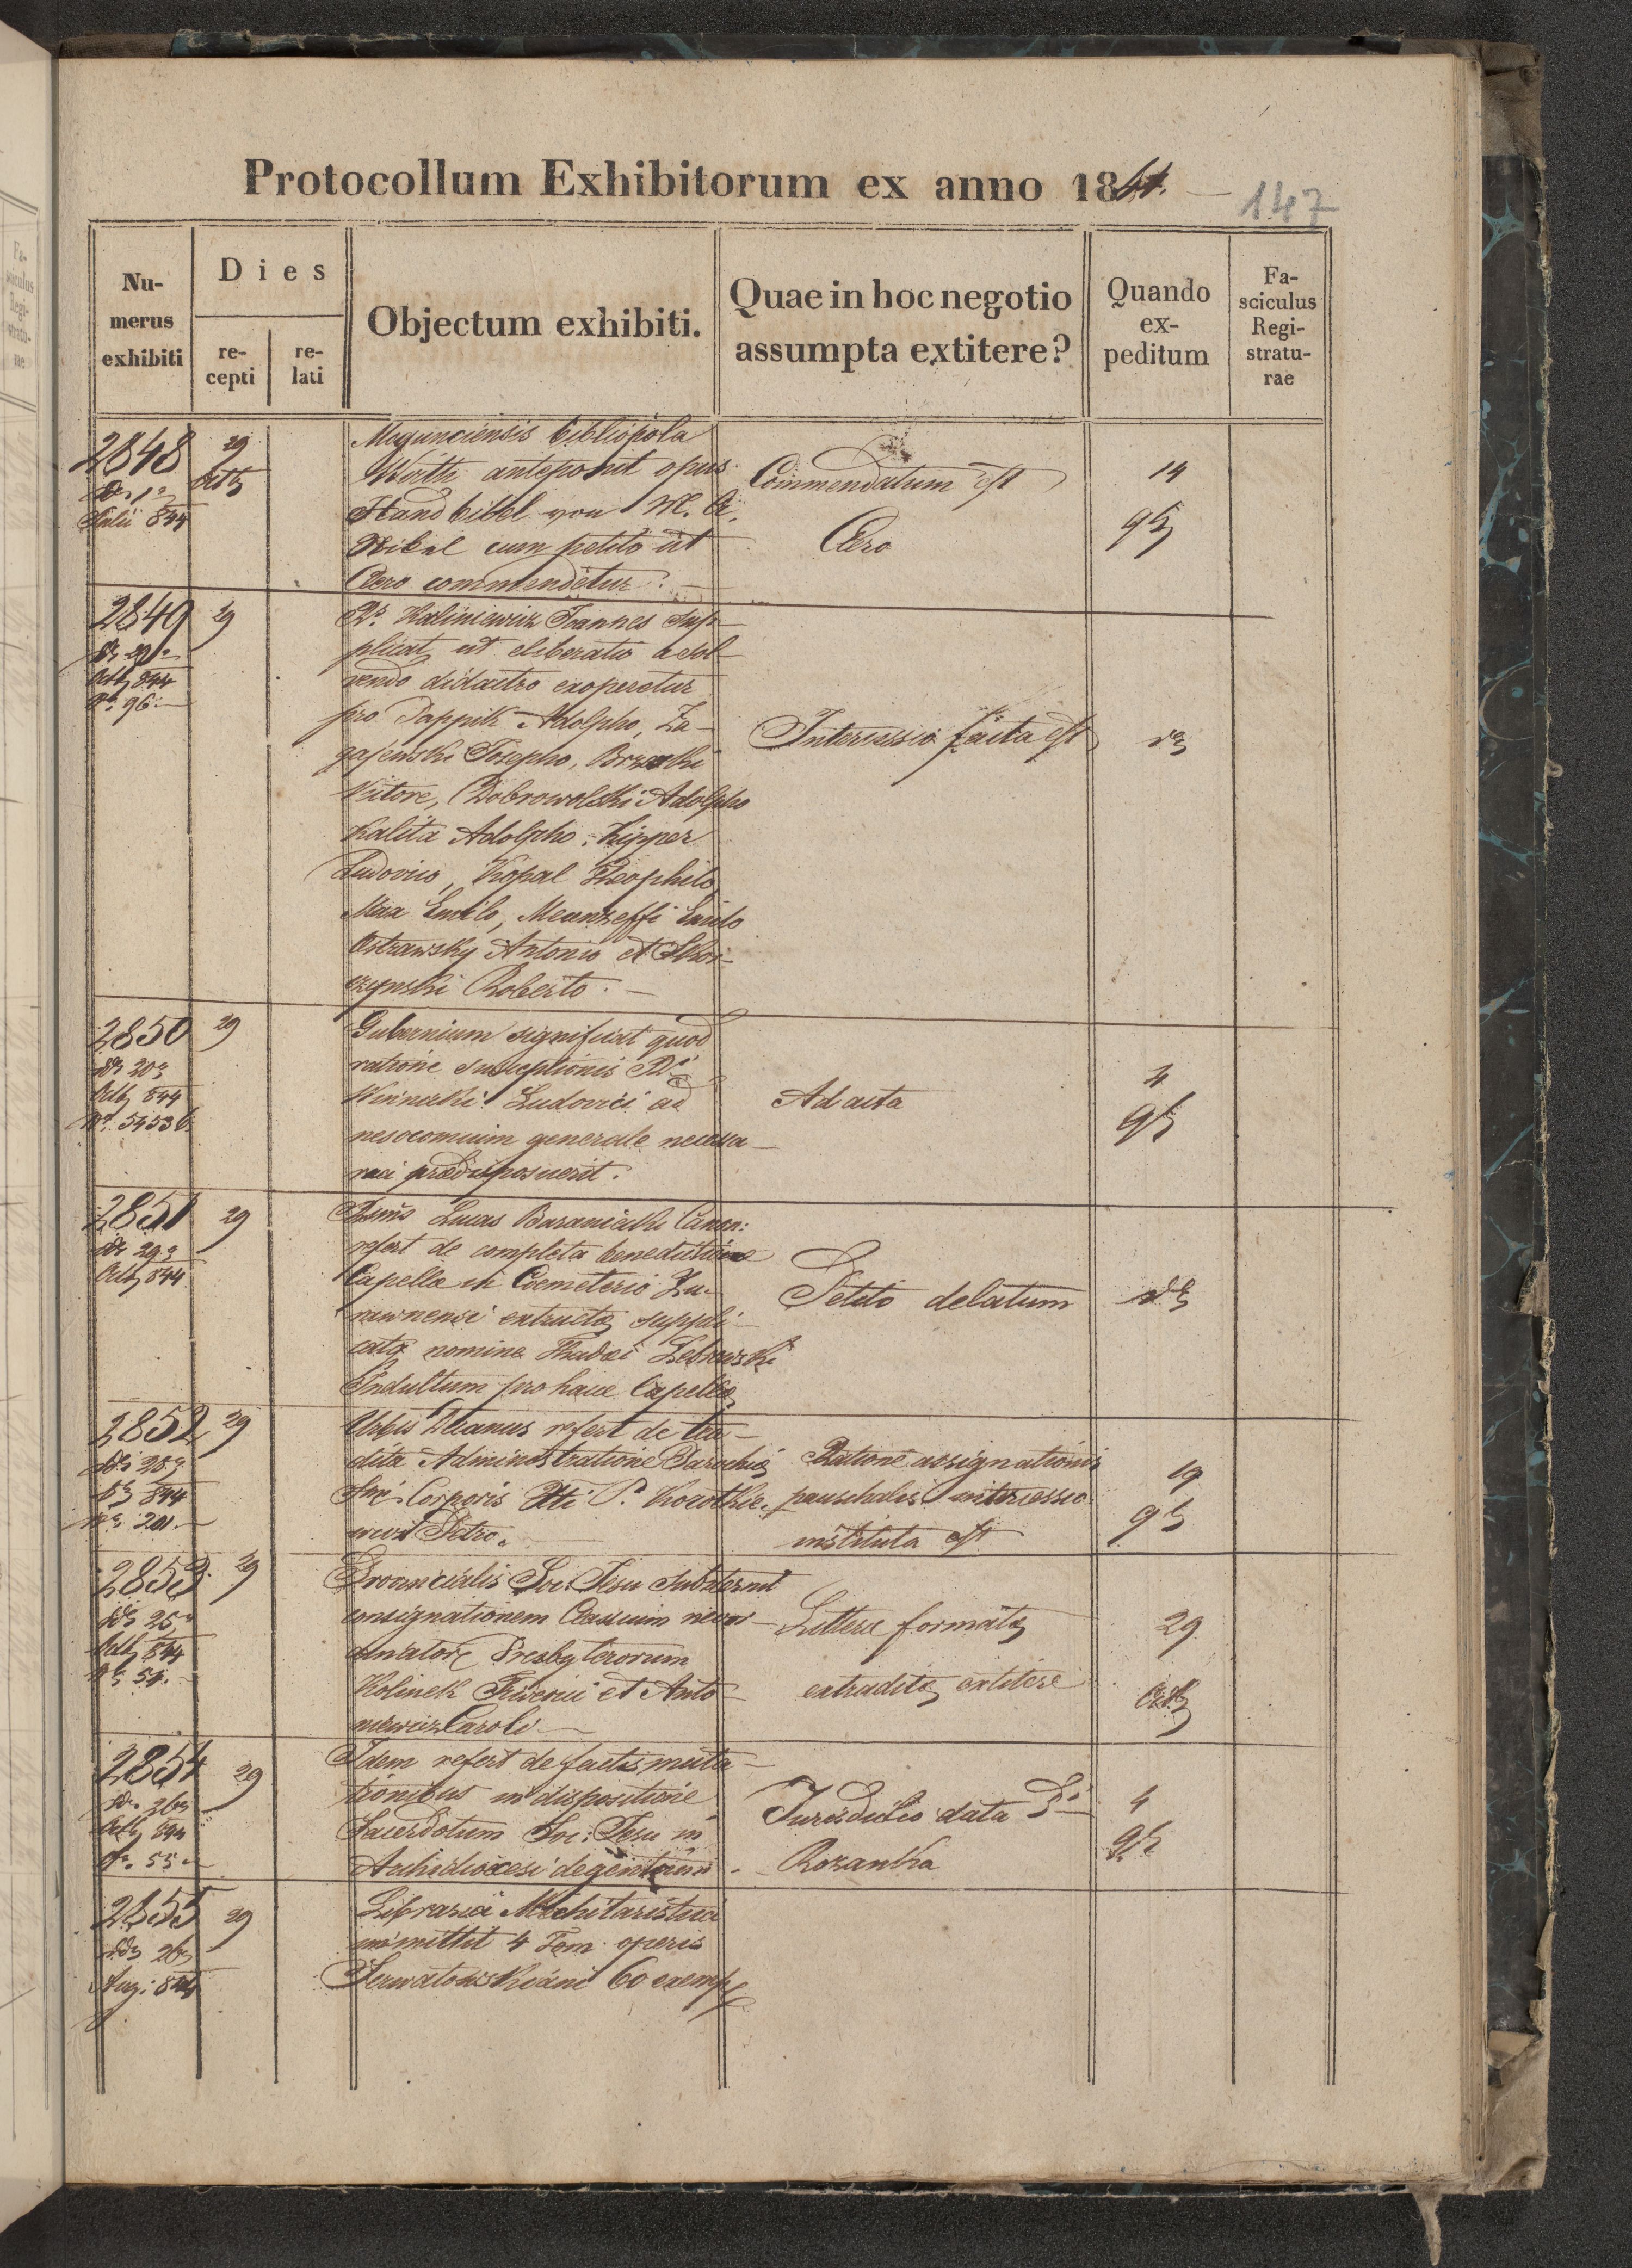 Protocollum Exhibitorum ex anno 1844.
147
Nu-
merus
exhibiti
Dies
re-
cepti
re-
lati
Objectum exhibiti.
Quae in hoc negotio
assumpta extitere?
Quando
ex-
peditum
Fa-
sciculus
Regi-
stratu-
rae
2848
Julii 844
29
Magunciensis bibliopola
Wirth anteponit opus
Handbibel von
cum petito ut
Clero commendetur.
Commendatum est
Clero
14
9b
2849
Octb 844
N. 96
29
Kaliniewicz Joannes sup-
plicat ut eliberatio a sol-
vendo didactro exoperetur
pro Pappik Adolpho, Za-
gajewski Josepho,
Victore, Dobrowolski Adolpho
Kalita Adolpho, Kipper
Ludovico, Kopal Theophilo
Max Emilo,
Ostrawsky Antonio et Skor-
czynski Roberto.
Intercessio facta est
2850
20
Octb 844
N. 54536
29
Gubernium significat quod
ratione susceptionis
Winnicki Ludovici ad
nosocomium generale necessa-
ria praedisposuerit.
Ad acta
4
9b
2851
29
Octb 844
29
Lucas Baraniecki Canon:
refert de completa benedictione
Capellae in Coemeterio Zu-
rawnensi extructae suppli-
catq nomine Thadaei
Indultum pro hacce Capella
Petito delatum
2852
28
844
N. 201
29
Urbis Decanus refert de tra-
dita Administratione Parochiae
Corporis Xti P. Korotkie-
wicz Petro.
Ratione assignationis
pauschalis intercessio
instituta est
19
9b
2853
25
Octb 844
N. 54.
29
Provincialis Soc: Jesu substernit
consignationem Classium neoor-
dinatorum Presbyterorum
Kolinek Friderici et Anto-
niewicz Caroli
Litterae formatae
extraditae extitere
29
Octb
2854
26
Octb 844
N. 55
29
Idem refert de factis muta-
tionibus in dispositione
Sacerdotum Soc: Jesu in
Archidioecesi degentium.
Jurisdictio data
Rozanka
4
9b
2855
26
Aug: 844
29
Libraria Mechitaristica
immittit 4 Tom operis
60 exempl